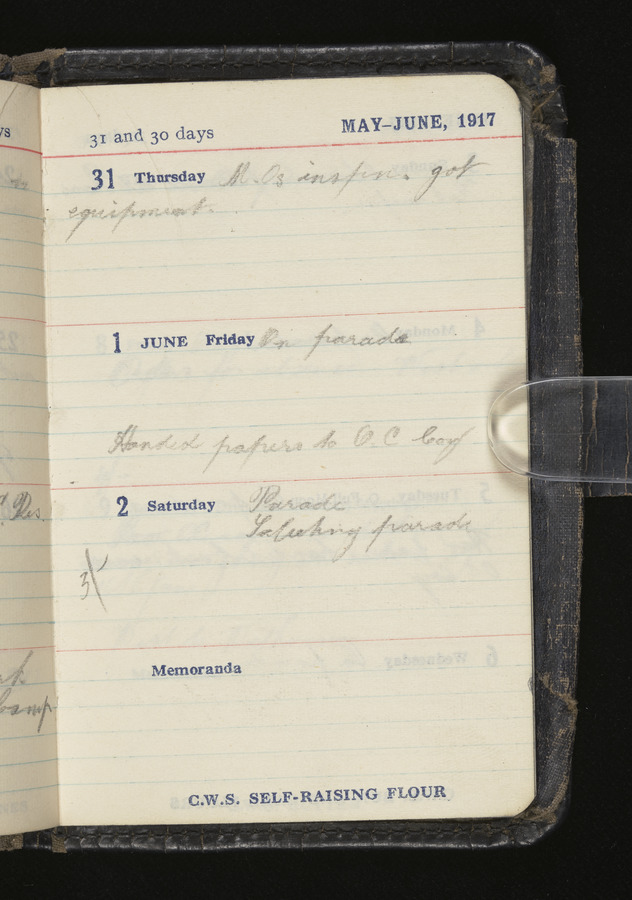 31 and 30 days MAY–JUNE, 1917
31 Thursday M.Os inspn. got
equipment.
1 JUNE Friday On parade
Handed papers to O.C Coy
2 Saturday Parade
Saluting parade
3
Memoranda
C.W.S. SELF-RAISING FLOUR
ys
Camp